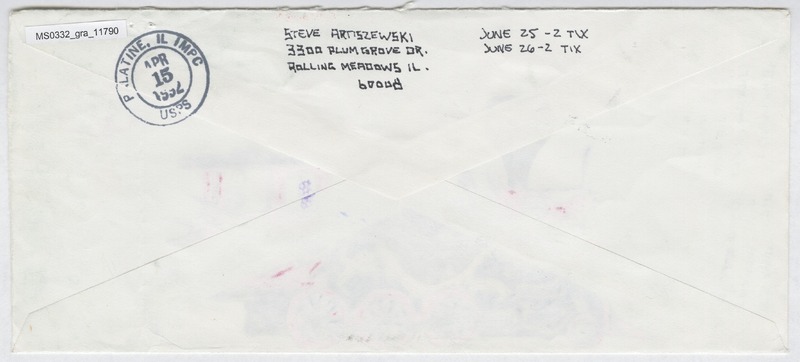 MS0332_gra_11790
PALATINE, IL IMPC
APR
15
1992
USPS
STEVE ARTISZEWSKI
3300 PLUM GROVE DR.
ROLLING MEADOWS IL.
60008
JUNE 25 - 2 TIX
JUNE 26 - 2 TIX